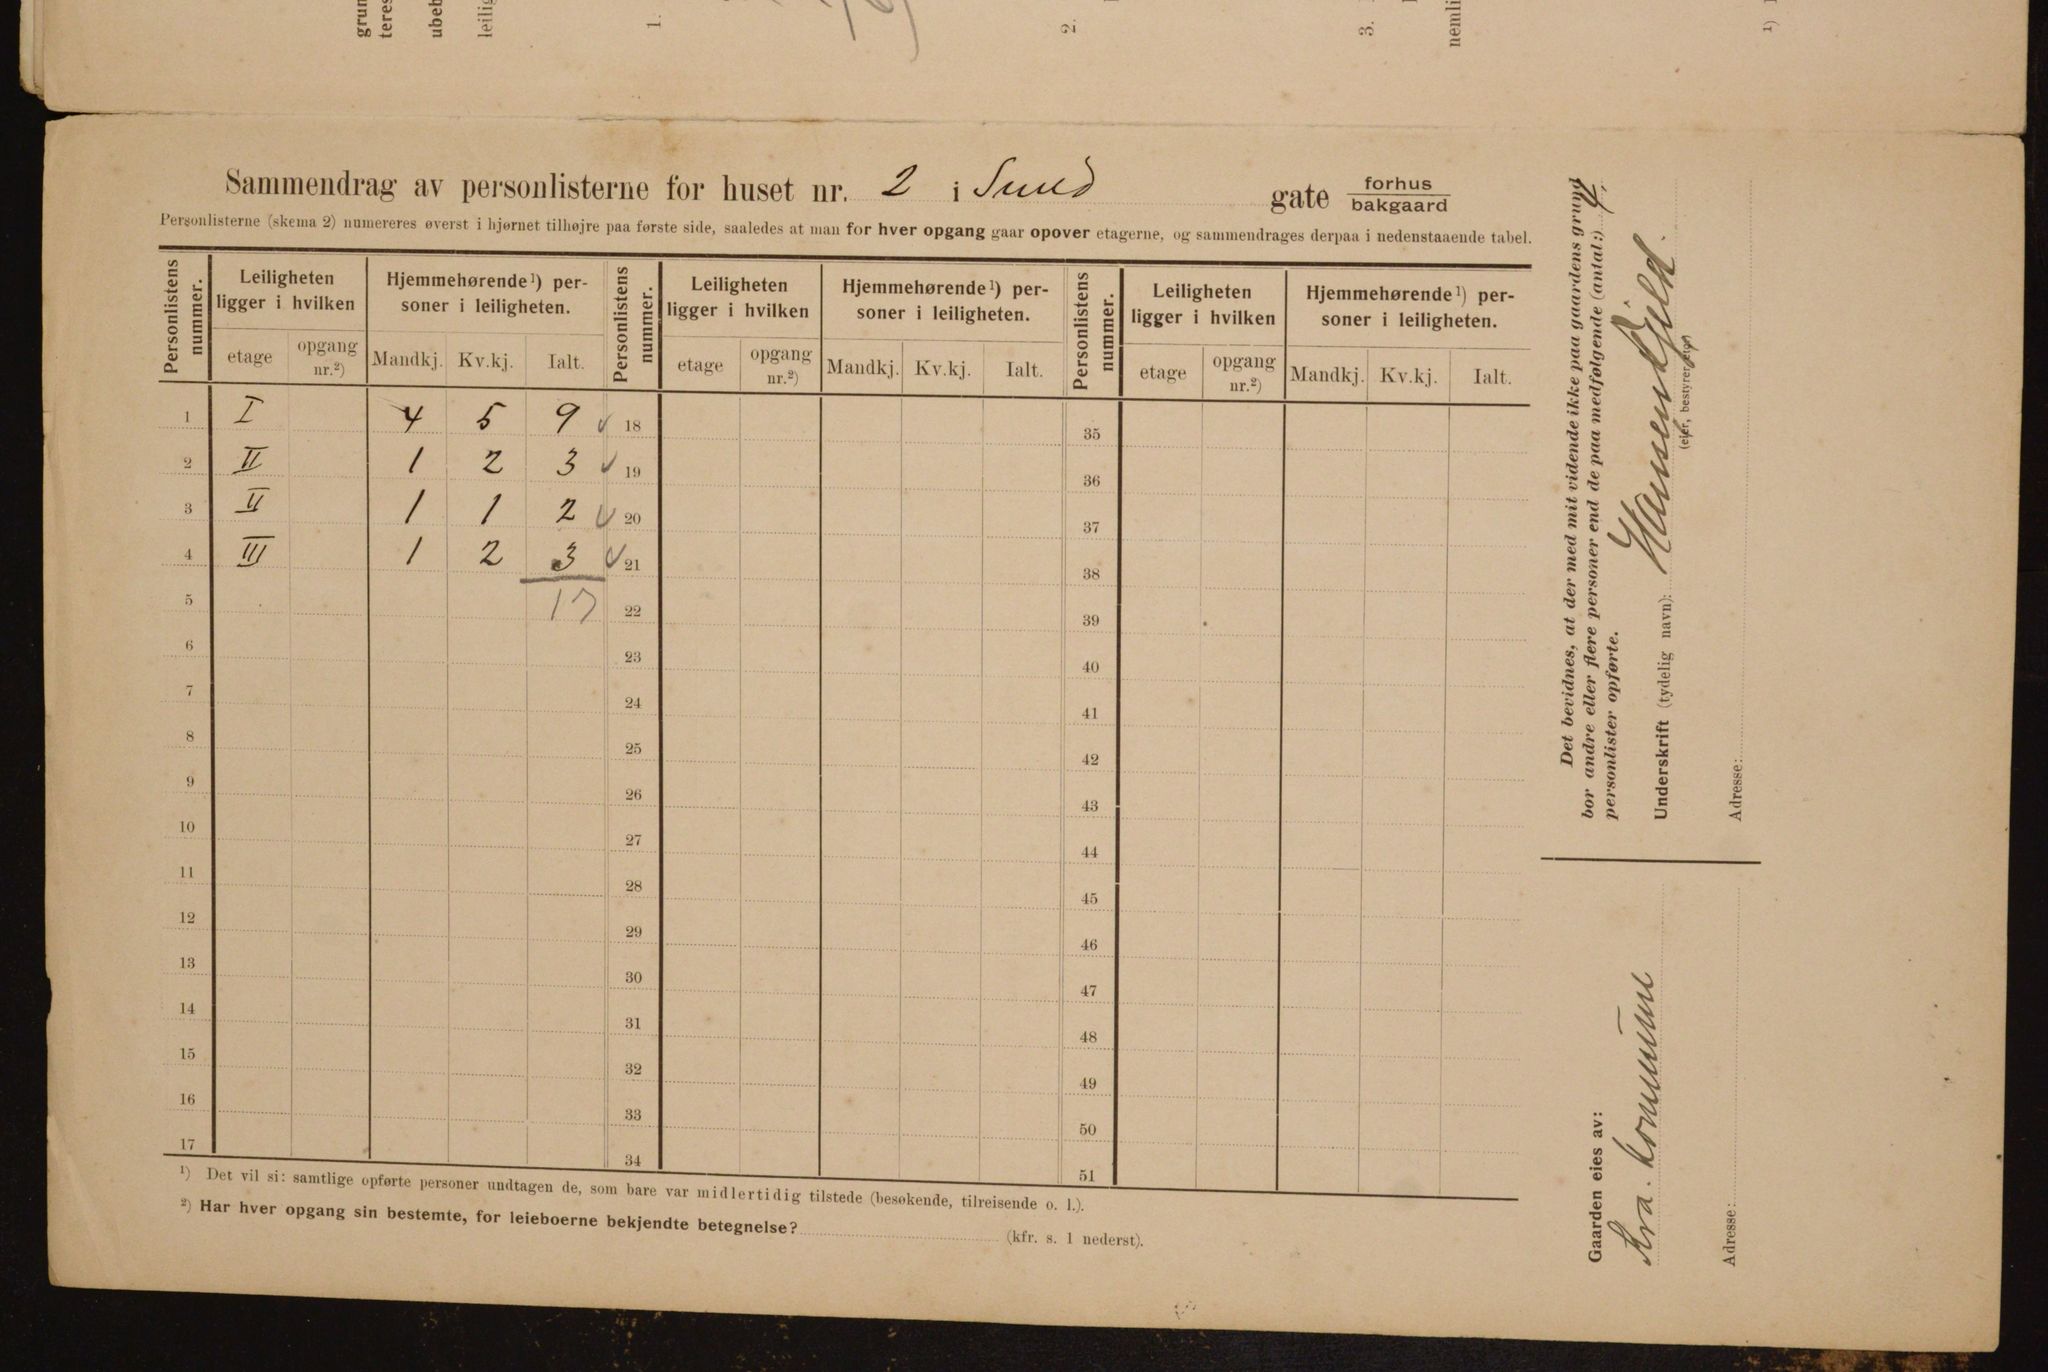 grun
teres
ubeb
leilig
1.
2.
3.
nemli
¹)
Sammendrag av personlisterne for huset nr. 2 i Sund gate forhus
bakgaard
Personlisterne (skema 2) numereres øverst i hjørnet tilhøjre paa første side, saaledes at man for hver opgang gaar opover etagerne, og sammendrages derpaa i nedenstaaende tabel.
Personlistens nummer. Leiligheten ligger i hvilken Hjemmehørende¹) personer i leiligheten. Personlistens nummer. Leiligheten ligger i hvilken Hjemmehørende¹) personer i leiligheten. Personlistens nummer. Leiligheten ligger i hvilken Hjemmehørende¹) personer i leiligheten.
etage opgang nr.²) Mandkj. Kv.kj. Ialt. etage opgang nr.²) Mandkj. Kv.kj. Ialt. etage opgang nr.²) Mandkj. Kv.kj. Ialt.
1 I 4 5 9 ✓ 18 35
2 II 1 2 3 ✓ 19 36
3 II 1 1 2 ✓ 20 37
4 III 1 2 3 ✓ 21 38
5 17 22 39
6 23 40
7 24 41
8 25 42
9 26 43
10 27 44
11 28 45
12 29 46
13 30 47
14 31 48
15 32 49
16 33 50
17 34 51
¹) Det vil si: samtlige opførte personer undtagen de, som bare var midlertidig tilstede (besøkende, tilreisende o. l.).
²) Har hver opgang sin bestemte, for leieboerne bekjendte betegnelse? (kfr. s. 1 nederst).
Det bevidnes, at der med mit vidende ikke paa gaardens grund
bor andre eller flere personer end de paa medfølgende (antal:) 4
personlister opførte.
Underskrift (tydelig navn):
(eier, bestyrer, eier)
Adresse:
Gaarden eies av:
Kra. kommune
Adresse: